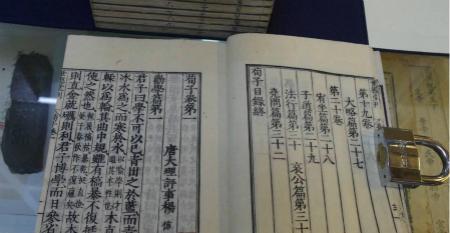 第十九卷
大略篇第二十七
第二十卷
宥坐篇第二十八
子道篇第二十九
法行篇第三十 哀公篇第三十
堯問篇第三十二
荀子目錄終
荀子卷第
唐大理評事楊 倞
勸學篇第一
君子曰學不可以已青出之於藍而青
冰水為之而寒於水 以喻學則才過其本性也 木直
輮以為輪其曲中規雖有槁暴不復挺
使之然也 故木
則直金就礪則利君子博學而日參省